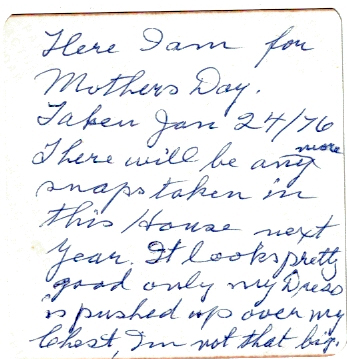 Here I am for
Mothers Day.
Taken Jan 24/76
There will be any more
snaps taken in
this House next
Year. It looks pretty
good only my Dress
is pushed up over my
Chest, I'm not that big.